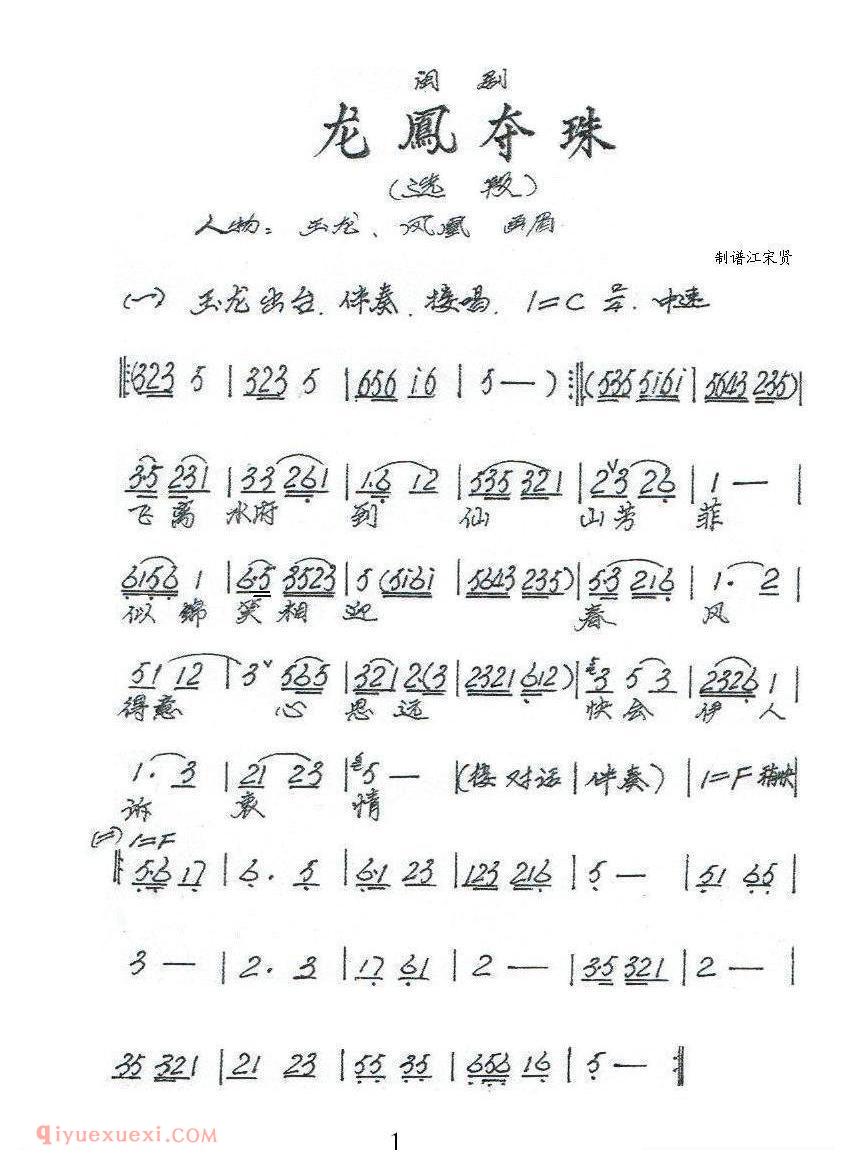 闽剧
龙鳳夺珠
(选段)
人物：玉龙、凤凰 画眉
制谱江宋贤
(一) 玉龙出台.伴奏.接唱. 1=C 2/4. 中速
‖:(323 5 | 323 5 | 656 i6 | 5 — ) :‖ (535 5i6i | 5643 235) |
3·5 231 | 33 261 | 1·6 12 | 535 321 | 2ˇ3 26 | 1 — |
飞离 水府 到 仙 山芳 菲
6156 1 | 6·5 3523 | 5 (5i6i | 5643 235) | 5·3 216 | 1· 2 |
似锦 笑相 迎 春 风
51 12 | 3ˇ 565 | 321 2(3 | 2321 612) | 3 5 3 | 2326 1 |
得意 心 思远 快会 伊人
1· 3 | 21 23 | 5 — (接对话 | 伴奏) | 1=F 稍快
诉 衷 情
(二) 1=F
‖: 5·6 17 | 6· 5 | 6·1 23 | 123 216 | 5 — | 51 65 |
3 — | 2· 3 | 17 61 | 2 — | 3·5 321 | 2 — |
35 321 | 21 23 | 55 35 | 656 16 | 5 — :‖
qiyuexuexi.com
1